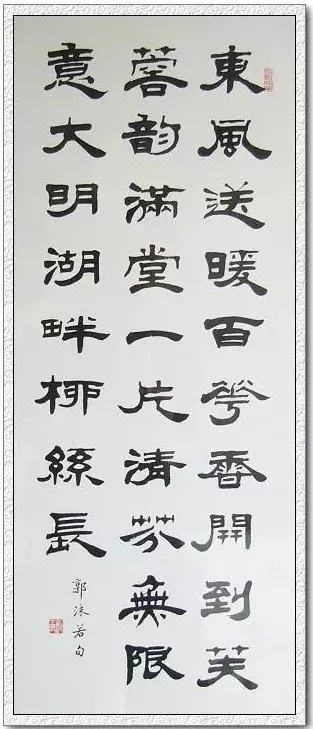 東風送暖百華香開到芙
蓉韵滿堂一片清芬無限
意大明湖畔柳絲長
郭沫若句